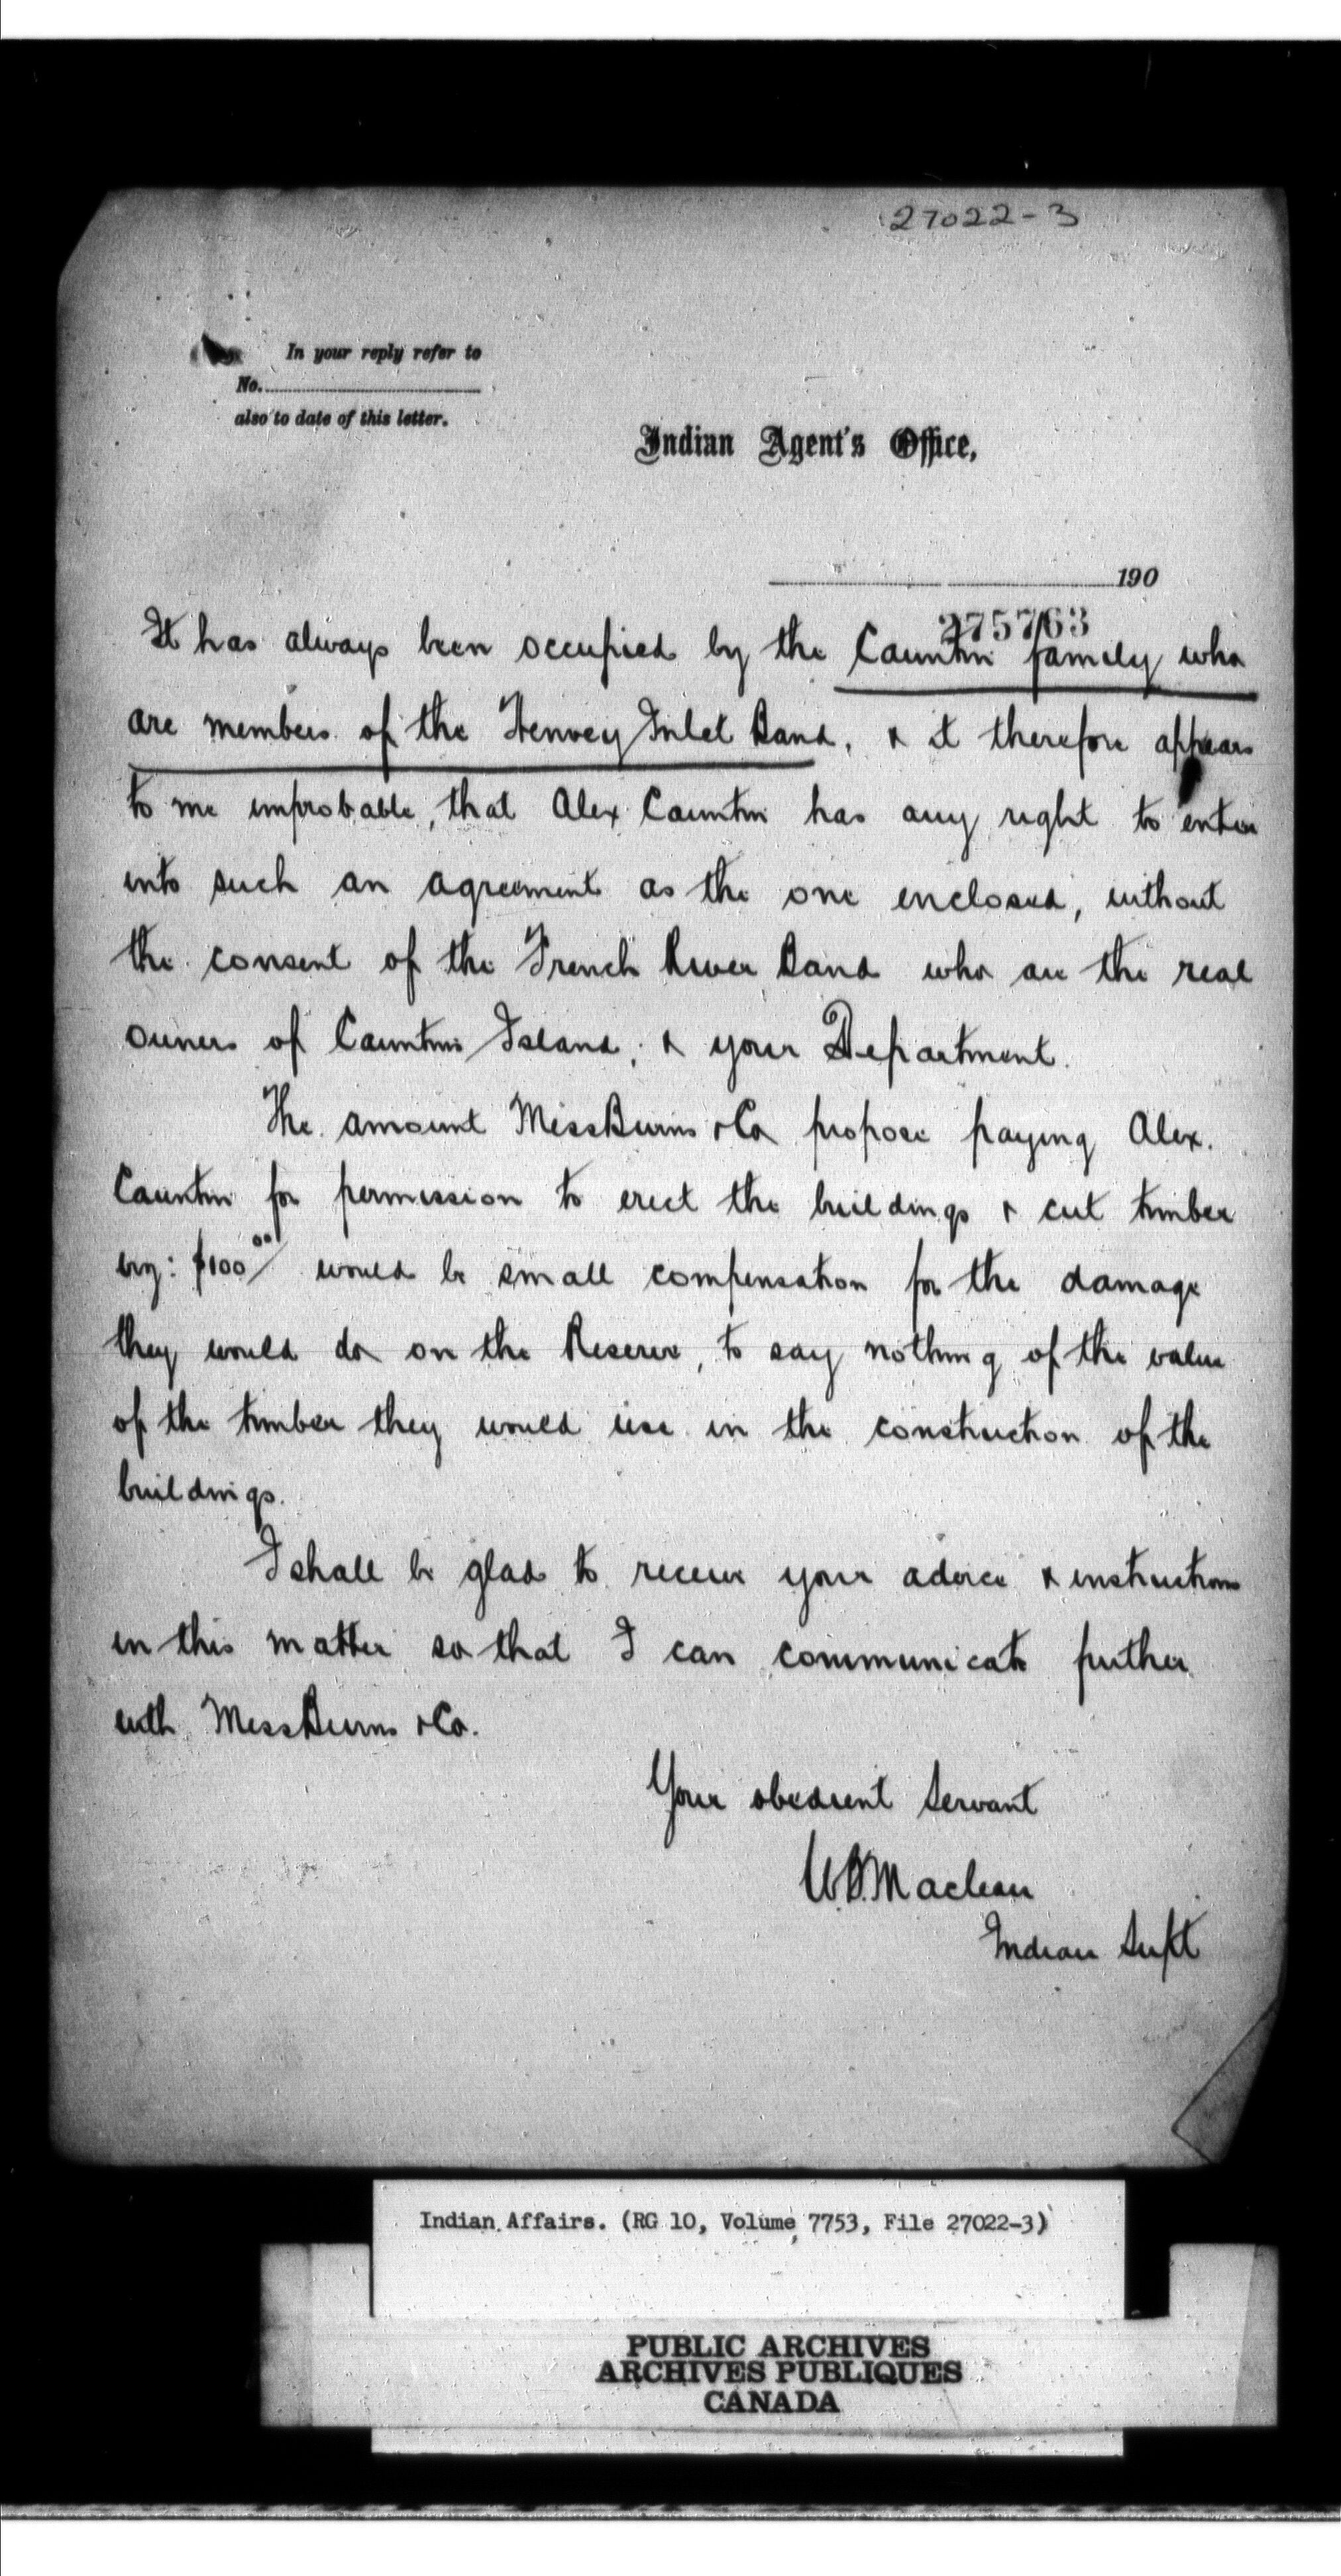 27022-3
In your reply refer to
No.
also to date of this letter.
Indian Agent's Office,
190
275763
It has always been occupied by the Cauntin family who
are members of the Henvey Inlet Band, & it therefore appears
to me improbable, that Alex Cauntin has any right to enter
into such an agreement as the one enclosed, without
the consent of the French River Band who are the real
owners of Cauntins Island, & your Department.
The amount Miss Burns & Co propose paying Alex.
Cauntin for permission to erect the buildings & cut timber
$100 00/ would be small compensation for the damage
they would do on the Reserve, to say nothing of the value
of the timber they would use in the construction of the
buildings.
I shall be glad to receive your advice & instructions
in this matter so that I can communicate further
with Miss Burns & Co.
Your obedient Servant
W.B. Maclean
Indian Supt
Indian Affairs. (RG 10, Volume 7753, File 27022-3)
PUBLIC ARCHIVES
ARCHIVES PUBLIQUES
CANADA